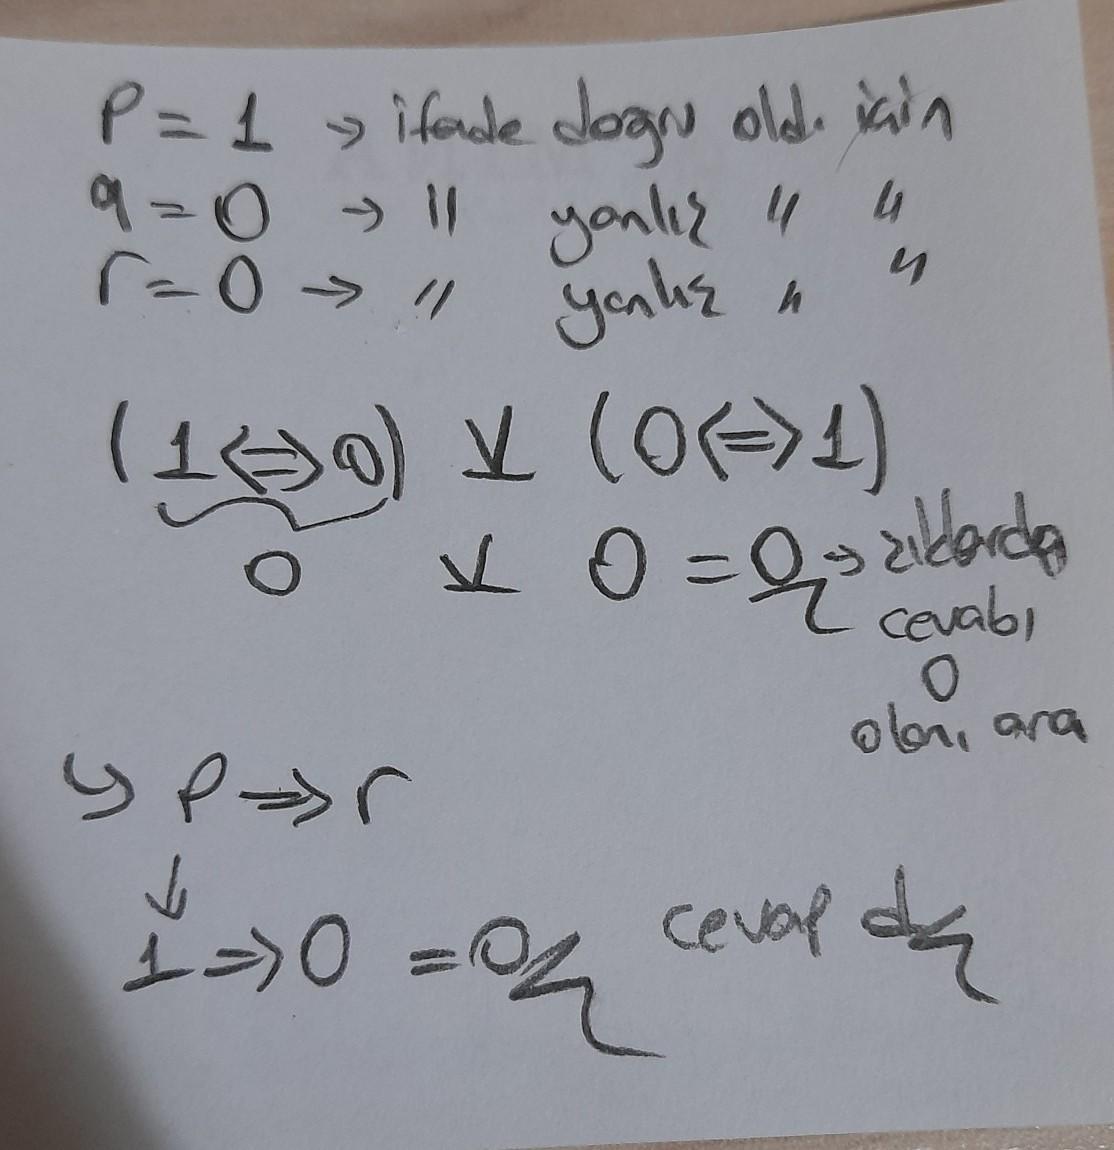 P = 1 → ifade doğru old. için
q = 0 → " yanlış " "
r = 0 → " yanlış " "
(1 ⇔ 0) ⊻ (0 ⇔ 1)
0 ⊻ 0 = 0 → şıklarda
cevabı
0
olanı ara
↳ P ⇒ r
↓
1 ⇒ 0 = 0 cevap d